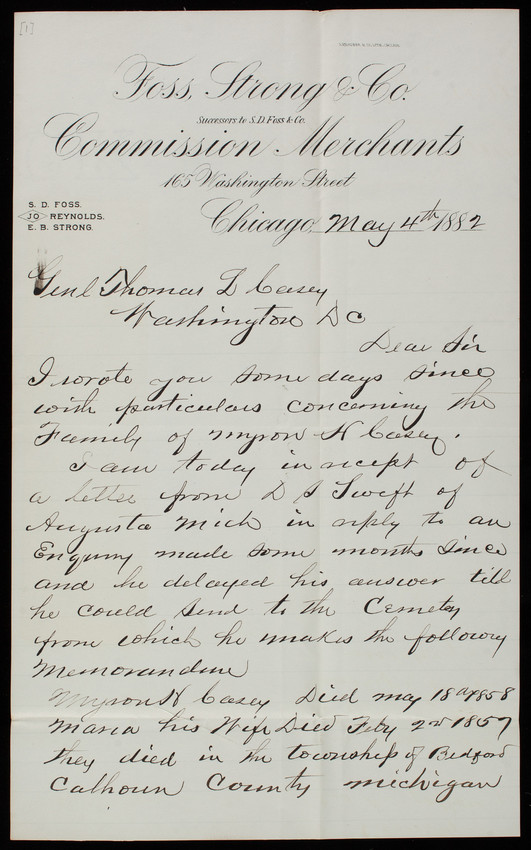 [1]
Foss, Strong & Co.
Successors to S. D. Foss & Co.
Commission Merchants
165 Washington Street
S. D. FOSS.
JO REYNOLDS.
E. B. STRONG.
Chicago, May 4th 1882
Genl Thomas L Casey
Washington DC
Dear Sir
I wrote you some days since
with particulars concerning the
Family of Myron H Casey.
I am today in reciept of
a letter from D S Swift of
Augusta Mich in reply to an
Enquiry made some months since
and he delayed his answer till
he could send to the Cemetey
from which he makes the following
Memorandum
Myron H Casey Died may 18 1858
Maria his Wife Died Feby 2nd 1857
they died in the township of Bedford
Calhoun County michigan